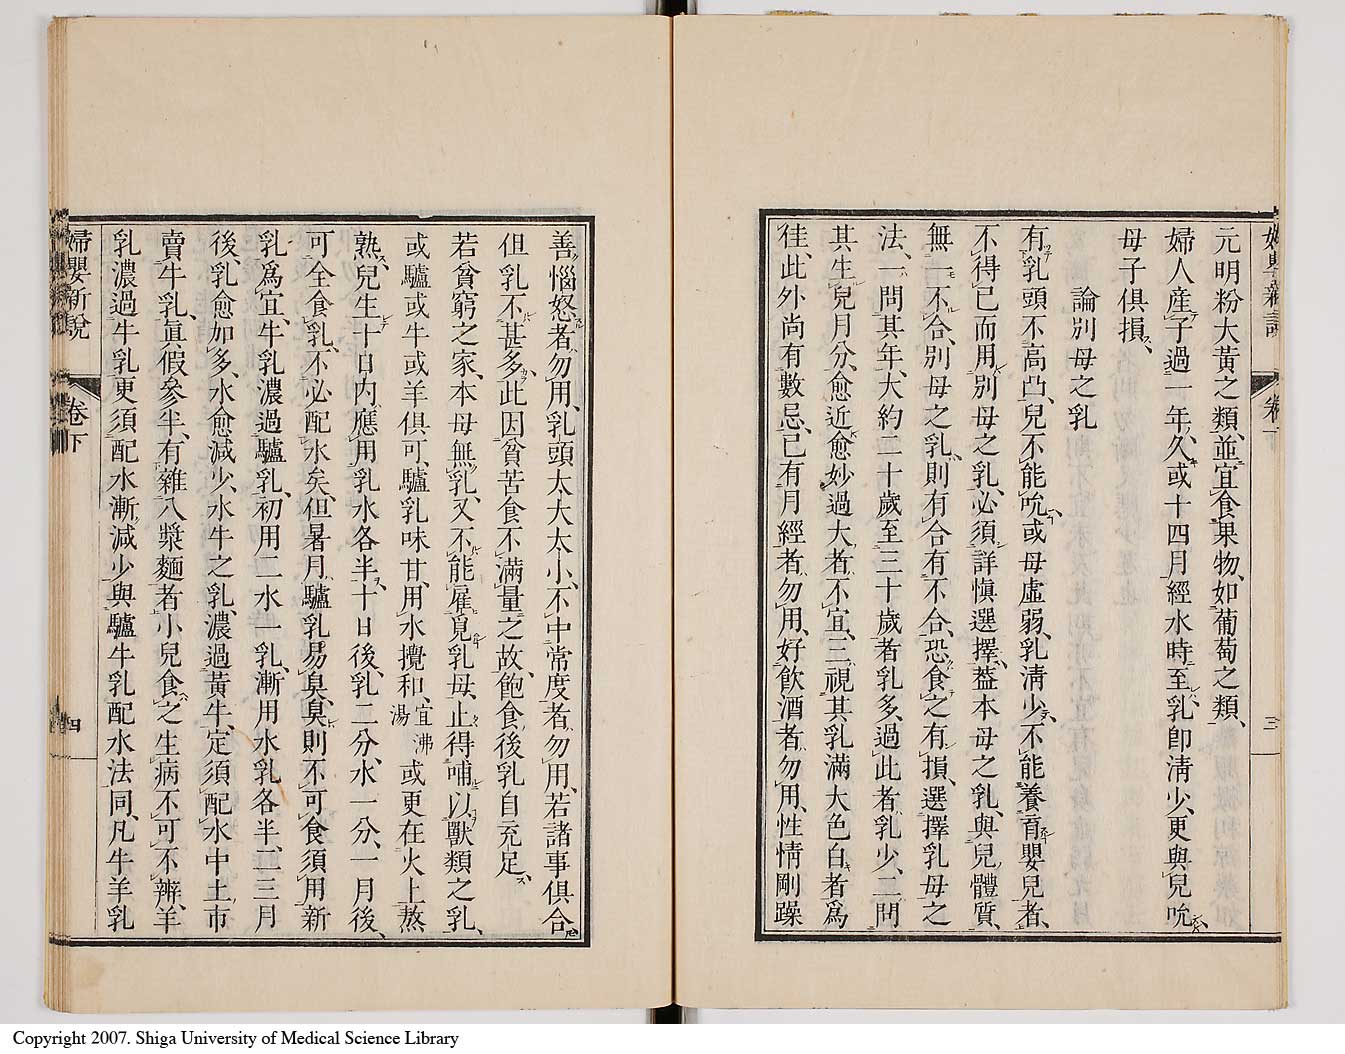 元明粉大黃之類、並宜食果物、如葡萄之類、
婦人產子過一年久、或十四月經水時至乳卽淸少、更與兒吮、
母子俱損、
論別母之乳
有乳頭不高凸、兒不能吮、或母虛弱、乳淸少、不能養育嬰兒者、
不得已而用別母之乳、必須詳愼選擇、葢本母之乳、與兒體質、
無一不合、別母之乳、則有合有不合、恐食之有損、選擇乳母之
法、一問其年、大約二十歲至三十歲者乳多、過此者乳少、二問
其生兒月分、愈近愈妙過大者、不宜、三視其乳滿大色白者爲
佳、此外尚有數忌、已有月經者勿用、好飮酒者勿用、性情剛躁
三
善惱怒者勿用、乳頭太大太小、不中常度者勿用、若諸事俱合
但乳不甚多、此因貧苦食不滿量之故、飽食後乳自充足、
若貧窮之家、本母無乳、又不能雇覓乳母、止得哺以獸類之乳、
或驢或牛或羊俱可、驢乳味甘、用水攪和、宜沸湯或更在火上熬
熟、兒生十日內、應用乳水各半、十日後、乳二分、水一分、一月後、
可全食乳、不必配水矣、但暑月驢乳易臭、臭則不可食須用新
乳爲宜、牛乳濃過驢乳、初用二水一乳、漸用水乳各半、二三月
後、乳愈加多、水愈減少、水牛之乳、濃過黃牛、定須配水中土市
賣牛乳、眞假參半、有雜八漿麵者小兒食之生病不可不辨、羊
乳濃過牛乳更須配水漸減少與驢牛乳配水法同、凡牛羊乳
婦嬰新說
卷下
四
Copyright 2007. Shiga University of Medical Science Library